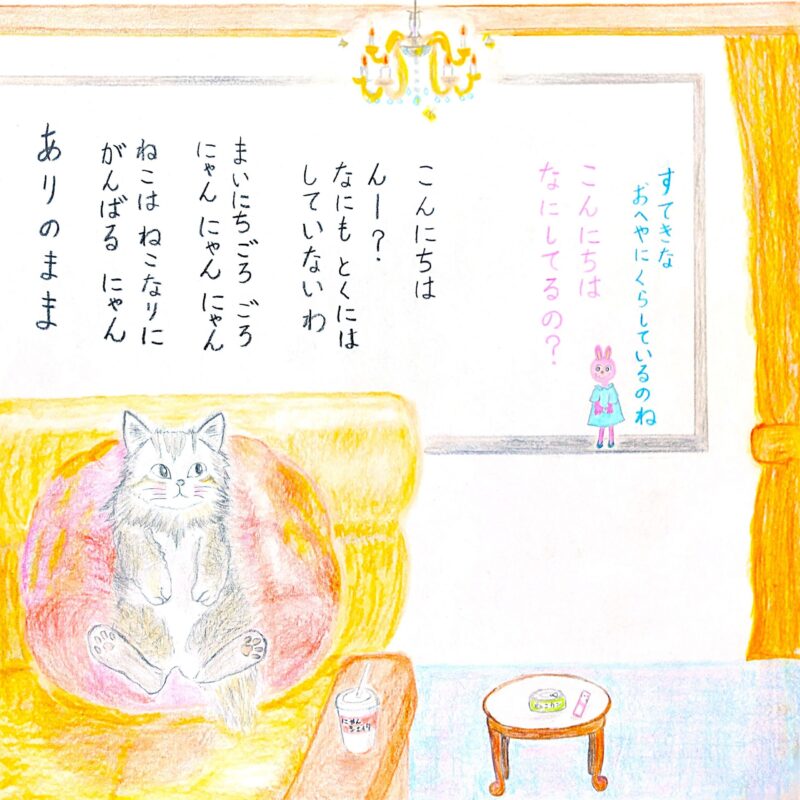 すてきな
おへやにくらしているのね
こんにちは
なにしてるの？
こんにちは
んー？
なにも とくには
していないわ
まいにち ごろ ごろ
にゃん にゃん にゃん
ねこは ねこなりに
がんばる にゃん
ありのまま
にゃん
シェイク